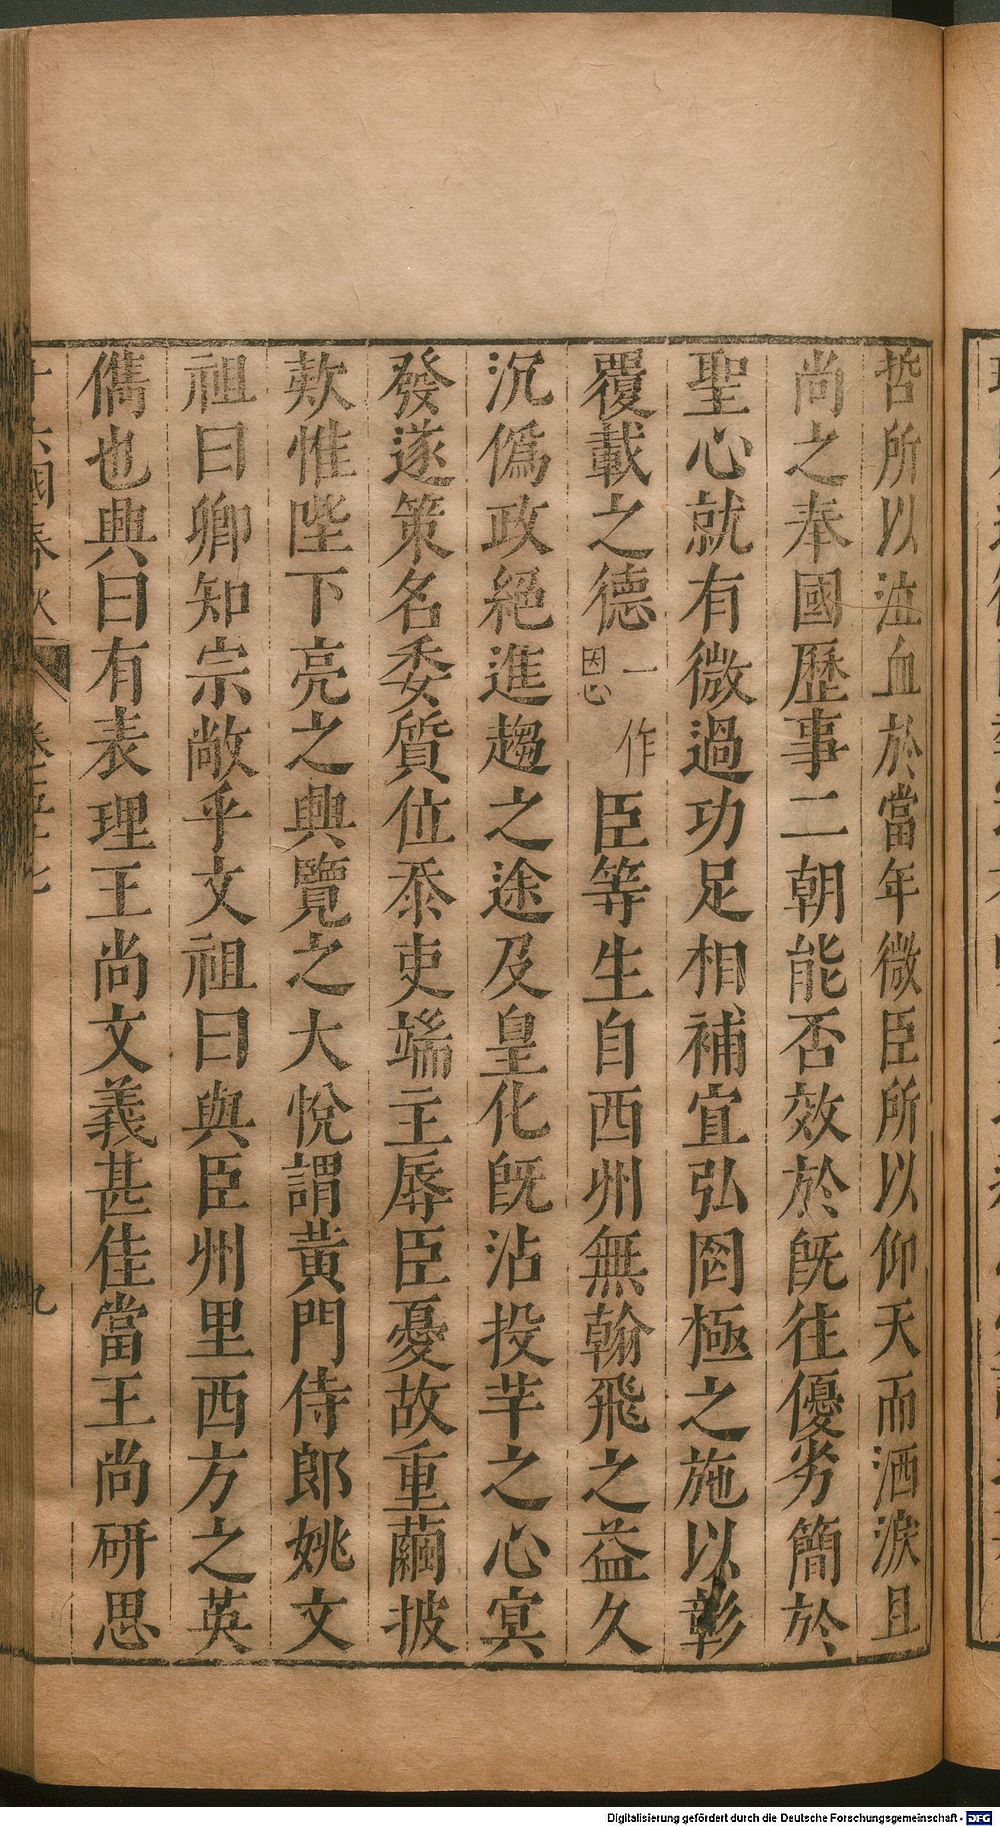 哲所以泣血於當年微臣所以仰天而洒淚且
尚之奉國歷事二朝能否效於既往優劣簡於
聖心就有微過功足相補宜弘罔極之施以彰
覆載之德一作恩臣等生自西州無翰飛之益久
沉僞政絕進趨之途及皇化旣沾投竿之心冥
發遂策名委質位忝吏端主辱臣憂故重繭披
欵惟陛下亮之興覽之大悅謂黃門侍郎姚文
祖曰卿知宗敞乎文祖曰與臣州里西方之英
儁也興曰有表理王尚文義甚佳當王尚研思
十六國春秋 卷五十七 九
Digitalisierung gefördert durch die Deutsche Forschungsgemeinschaft - DFG